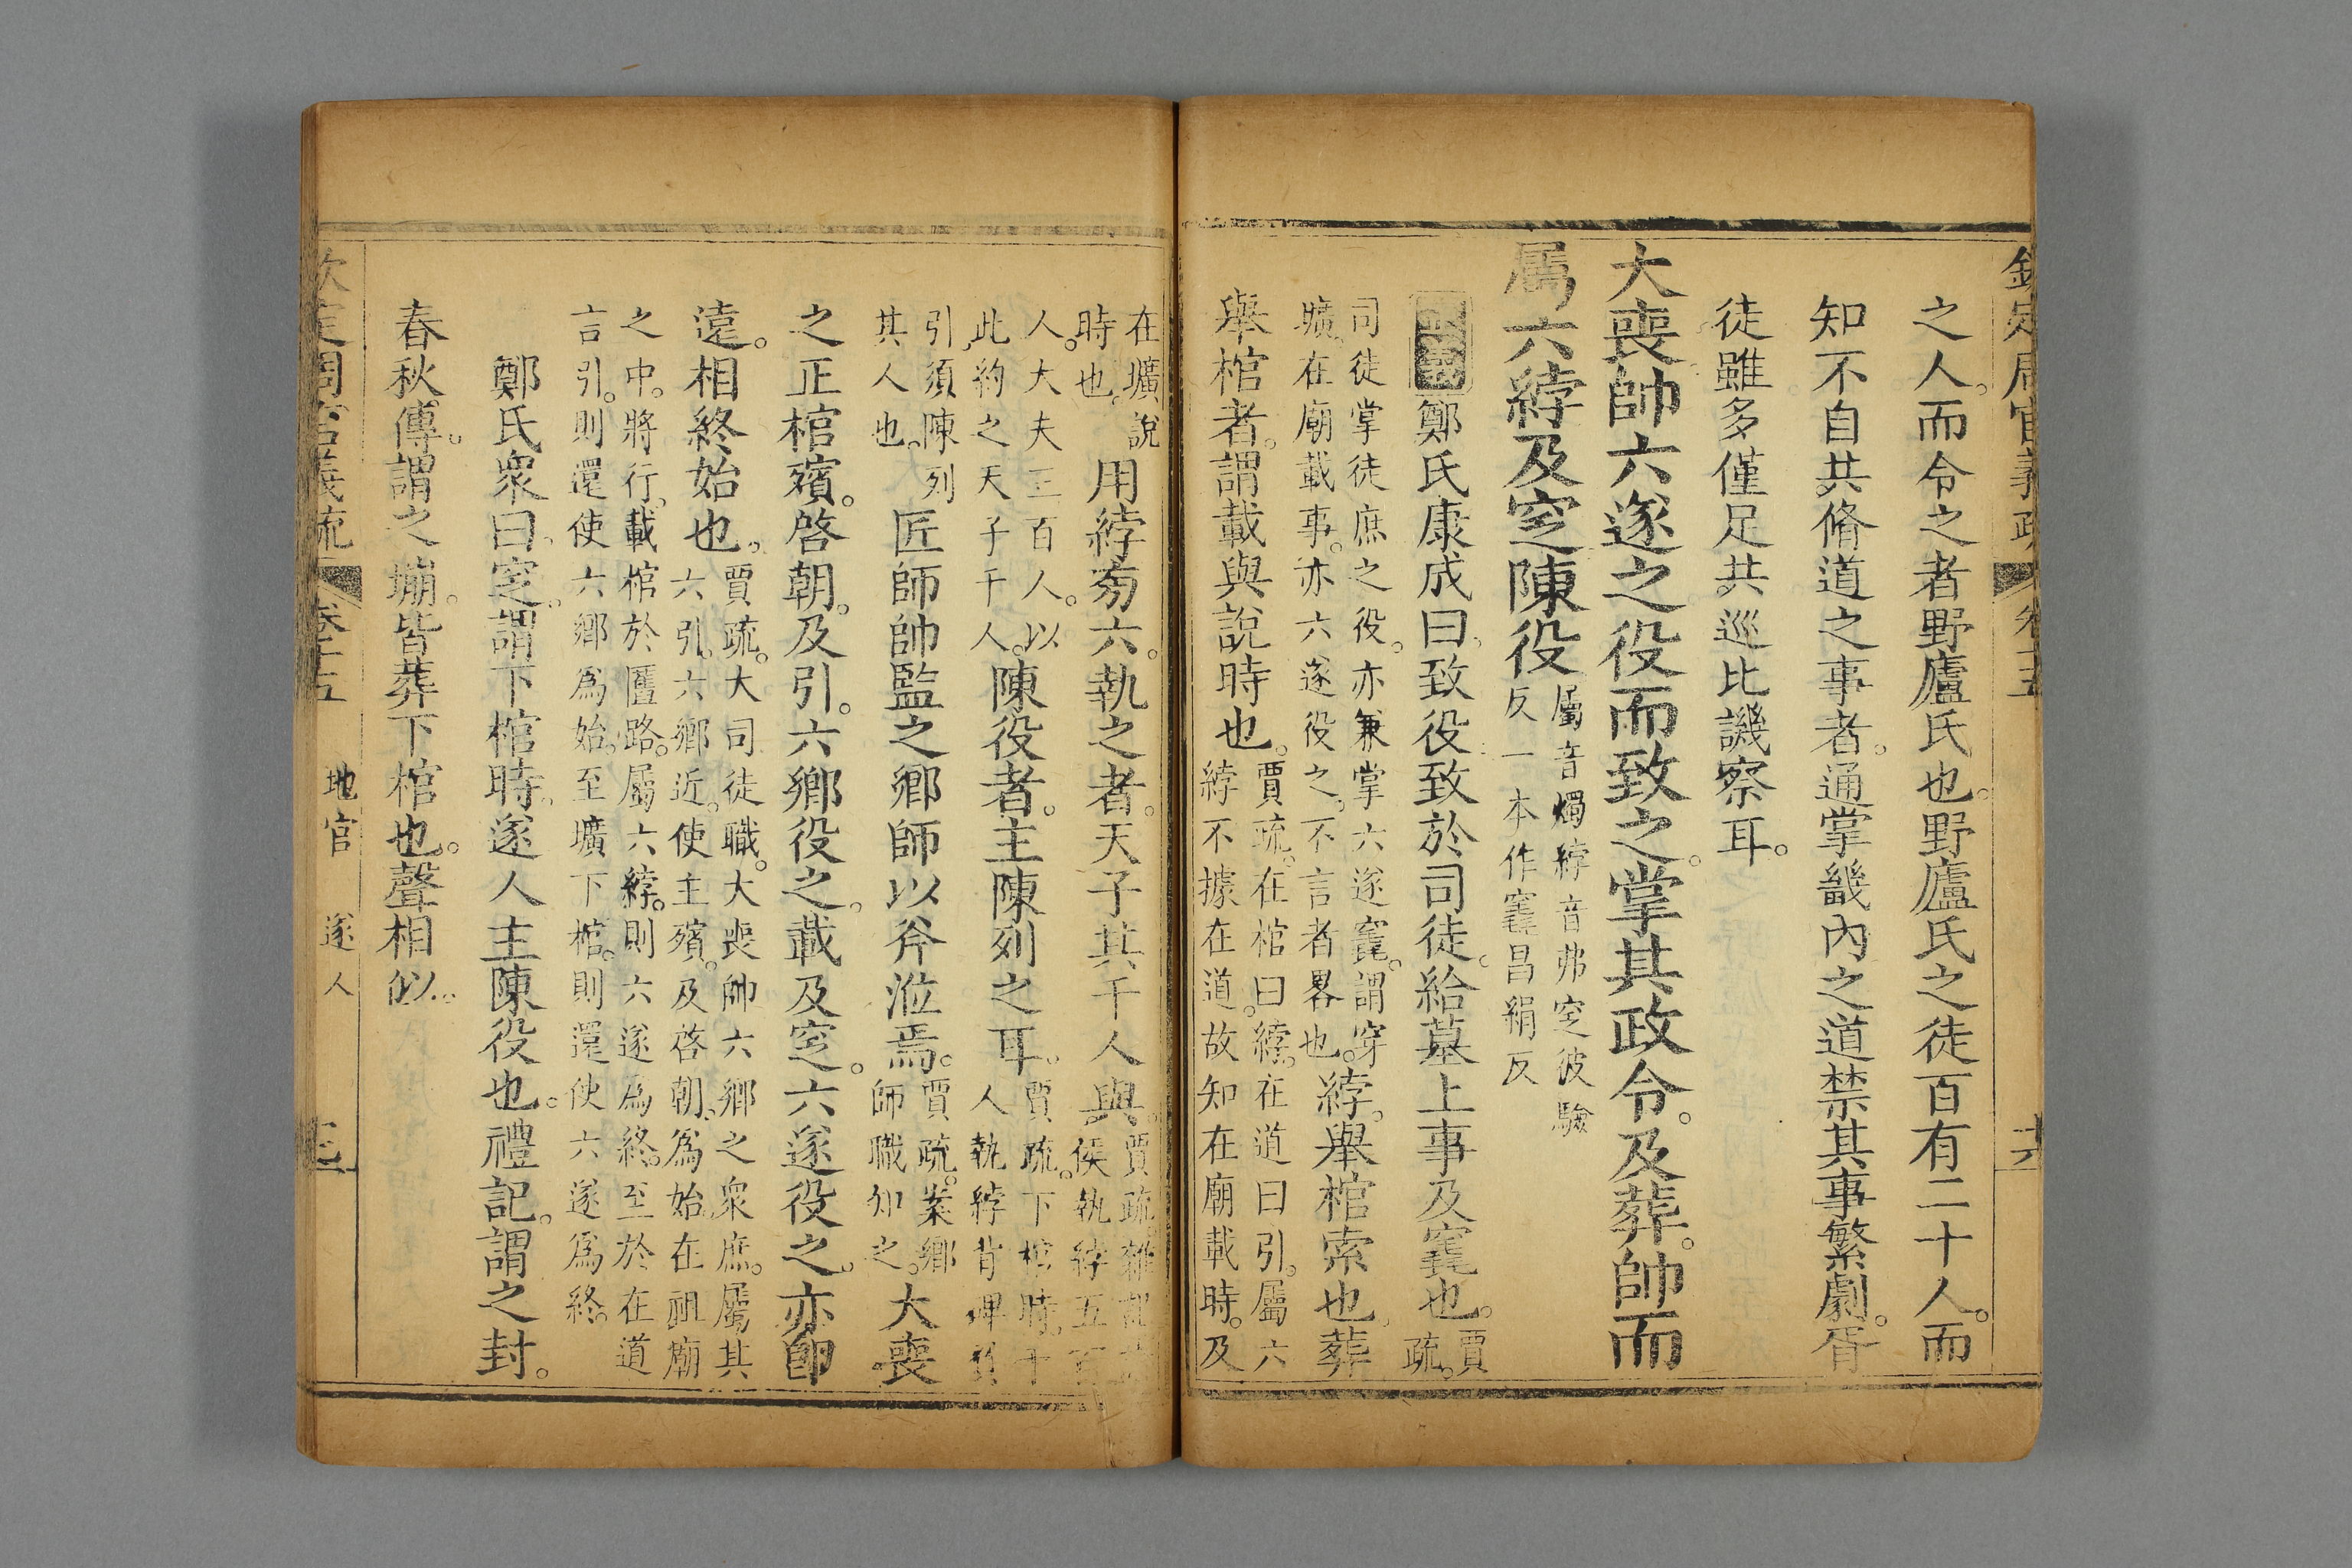 之人。而令之者野廬氏也。野廬氏之徒百有二十人。而
知不自共脩道之事者。通掌畿內之道禁其事繁劇。胥
徒雖多僅足共巡比譏察耳。
大喪帥六遂之役而致之。掌其政令。及葬。帥而
屬六綍及窆陳役
屬音燭綍音弗窆彼驗
反一本作竁昌絹反
鄭氏康成曰。致役致於司徒。給墓上事及竁也。
賈
疏。
司徒掌徒庶之役。亦兼掌六遂竁。謂穿
壙。在廟載事。亦六遂役之。不言者畧也。
綍。舉棺索也。葬
舉棺者。謂載與說時也。
賈疏。在棺曰綍。在道曰引。屬六
綍不據在道。故知在廟載時。及
在壙說
時也。
用綍旁六。執之者。天子其千人與。
賈疏
侯執綍五百
人。大夫三百人。以
此約之天子千人。
陳役者。主陳列之耳。
賈疏。下棺時。千
人執綍背碑
引須陳列
其人也。
匠師帥監之鄉師以斧涖焉。
賈疏。案鄉
師職知之。
大喪
之正棺殯。啓朝。及引。六鄉役之。載及窆。六遂役之。亦卽
遠。相終始也。
賈疏。大司徒職。大喪帥六鄉之衆庶。屬其
六引。六鄉近。使主殯。及啓朝。爲始。在祖廟
之中。將行。載棺於蜃路。屬六綍。則六遂爲終。至於在道
言引。則還使六鄉爲始。至壙下棺。則還使六遂爲終。
鄭氏衆曰。窆。謂下棺時。遂人主陳役也。禮記。謂之封。
春秋傳。謂之塴。皆葬下棺也。聲相似。
地官
遂人